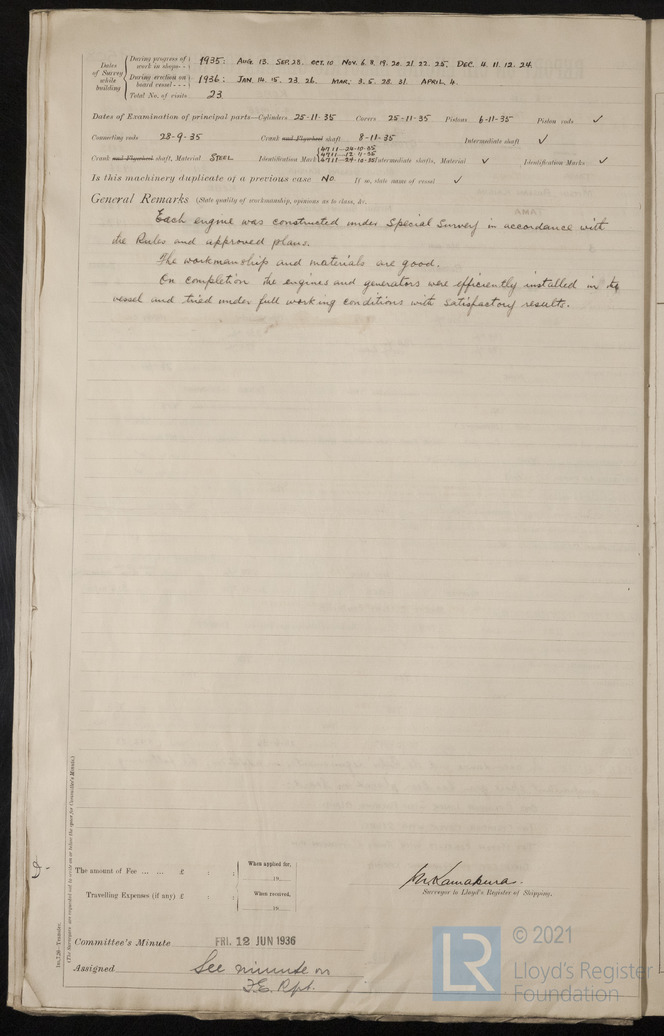 Dates of Survey while building
During progress of work in shops - - 1935: AUG. 13. SEP. 28. OCT. 10 NOV. 6. 8. 19. 20. 21. 22. 25. DEC. 4. 11. 12. 24.
During erection on board vessel - - - 1936: JAN. 14. 15. 23. 26. MAR. 3. 5. 28. 31. APRIL. 4.
Total No. of visits 23.
Dates of Examination of principal parts—Cylinders 25-11-35 Covers 25-11-35 Pistons 6-11-35 Piston rods ✓
Connecting rods 28-9-35 Crank and Flywheel shaft 8-11-35 Intermediate shaft ✓
Crank and Flywheel shaft, Material STEEL Identification Mark Intermediate shafts, Material ✓ Identification Marks ✓
Is this machinery duplicate of a previous case NO. If so, state name of vessel ✓
General Remarks (State quality of workmanship, opinions as to class, &c.
Each engine was constructed under Special Survey in accordance with
the Rules and approved plans.
The workmanship and materials are good.
On completion the engines and generators were efficiently installed in the
vessel and tried under full working conditions with satisfactory results.
The amount of Fee ... ... £ : : When applied for,
19
Travelling Expenses (if any) £ : : When received,
19
Surveyor to Lloyd's Register of Shipping.
Committee's Minute FRI. 12 JUN 1936
Assigned See minute on
F.E. Rpt.
(The Surveyors are requested not to write on or below the space for Committee's Minute.)
© 2021
LR
Lloyd's Register
Foundation